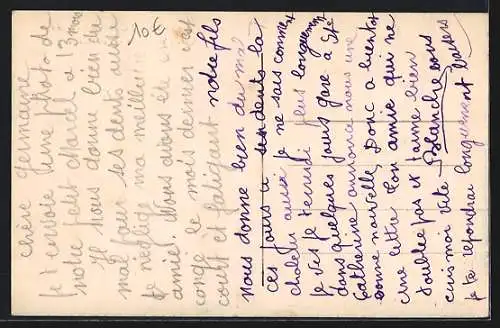 10€
chère Germaine
je t'envoie une photo de
notre petit Marcel a 13 mois
Il nous donne bien du
mal pour ses dents aussi
je néglige ma meilleure
amie. Nous avons eu un
congé le mois dernier c'est
court et fatigant notre fils
nous donne bien du mal
ces jours ci ses dents la
chaleur aussi je ne sais comment
je vis je t'écrirai plus longuement
dans quelques jours
Catherine annonce nous une
bonne nouvelle, Donc a bientot
une lettre Ton amie qui ne
t'oublie pas et t'aime bien
ecris moi vite Blanche
je te répondrai longuement baisers